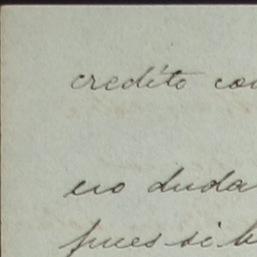 credito con
no duda
pues si b